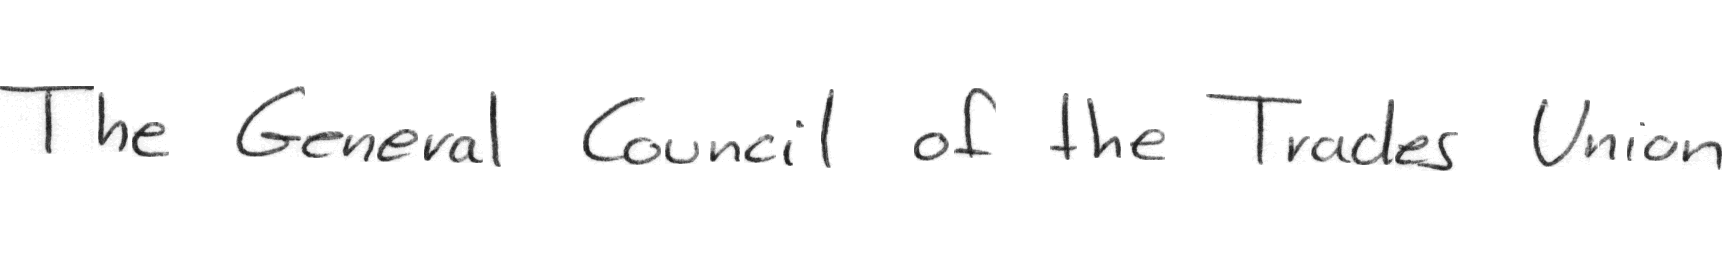 The General Council of the Trades Union